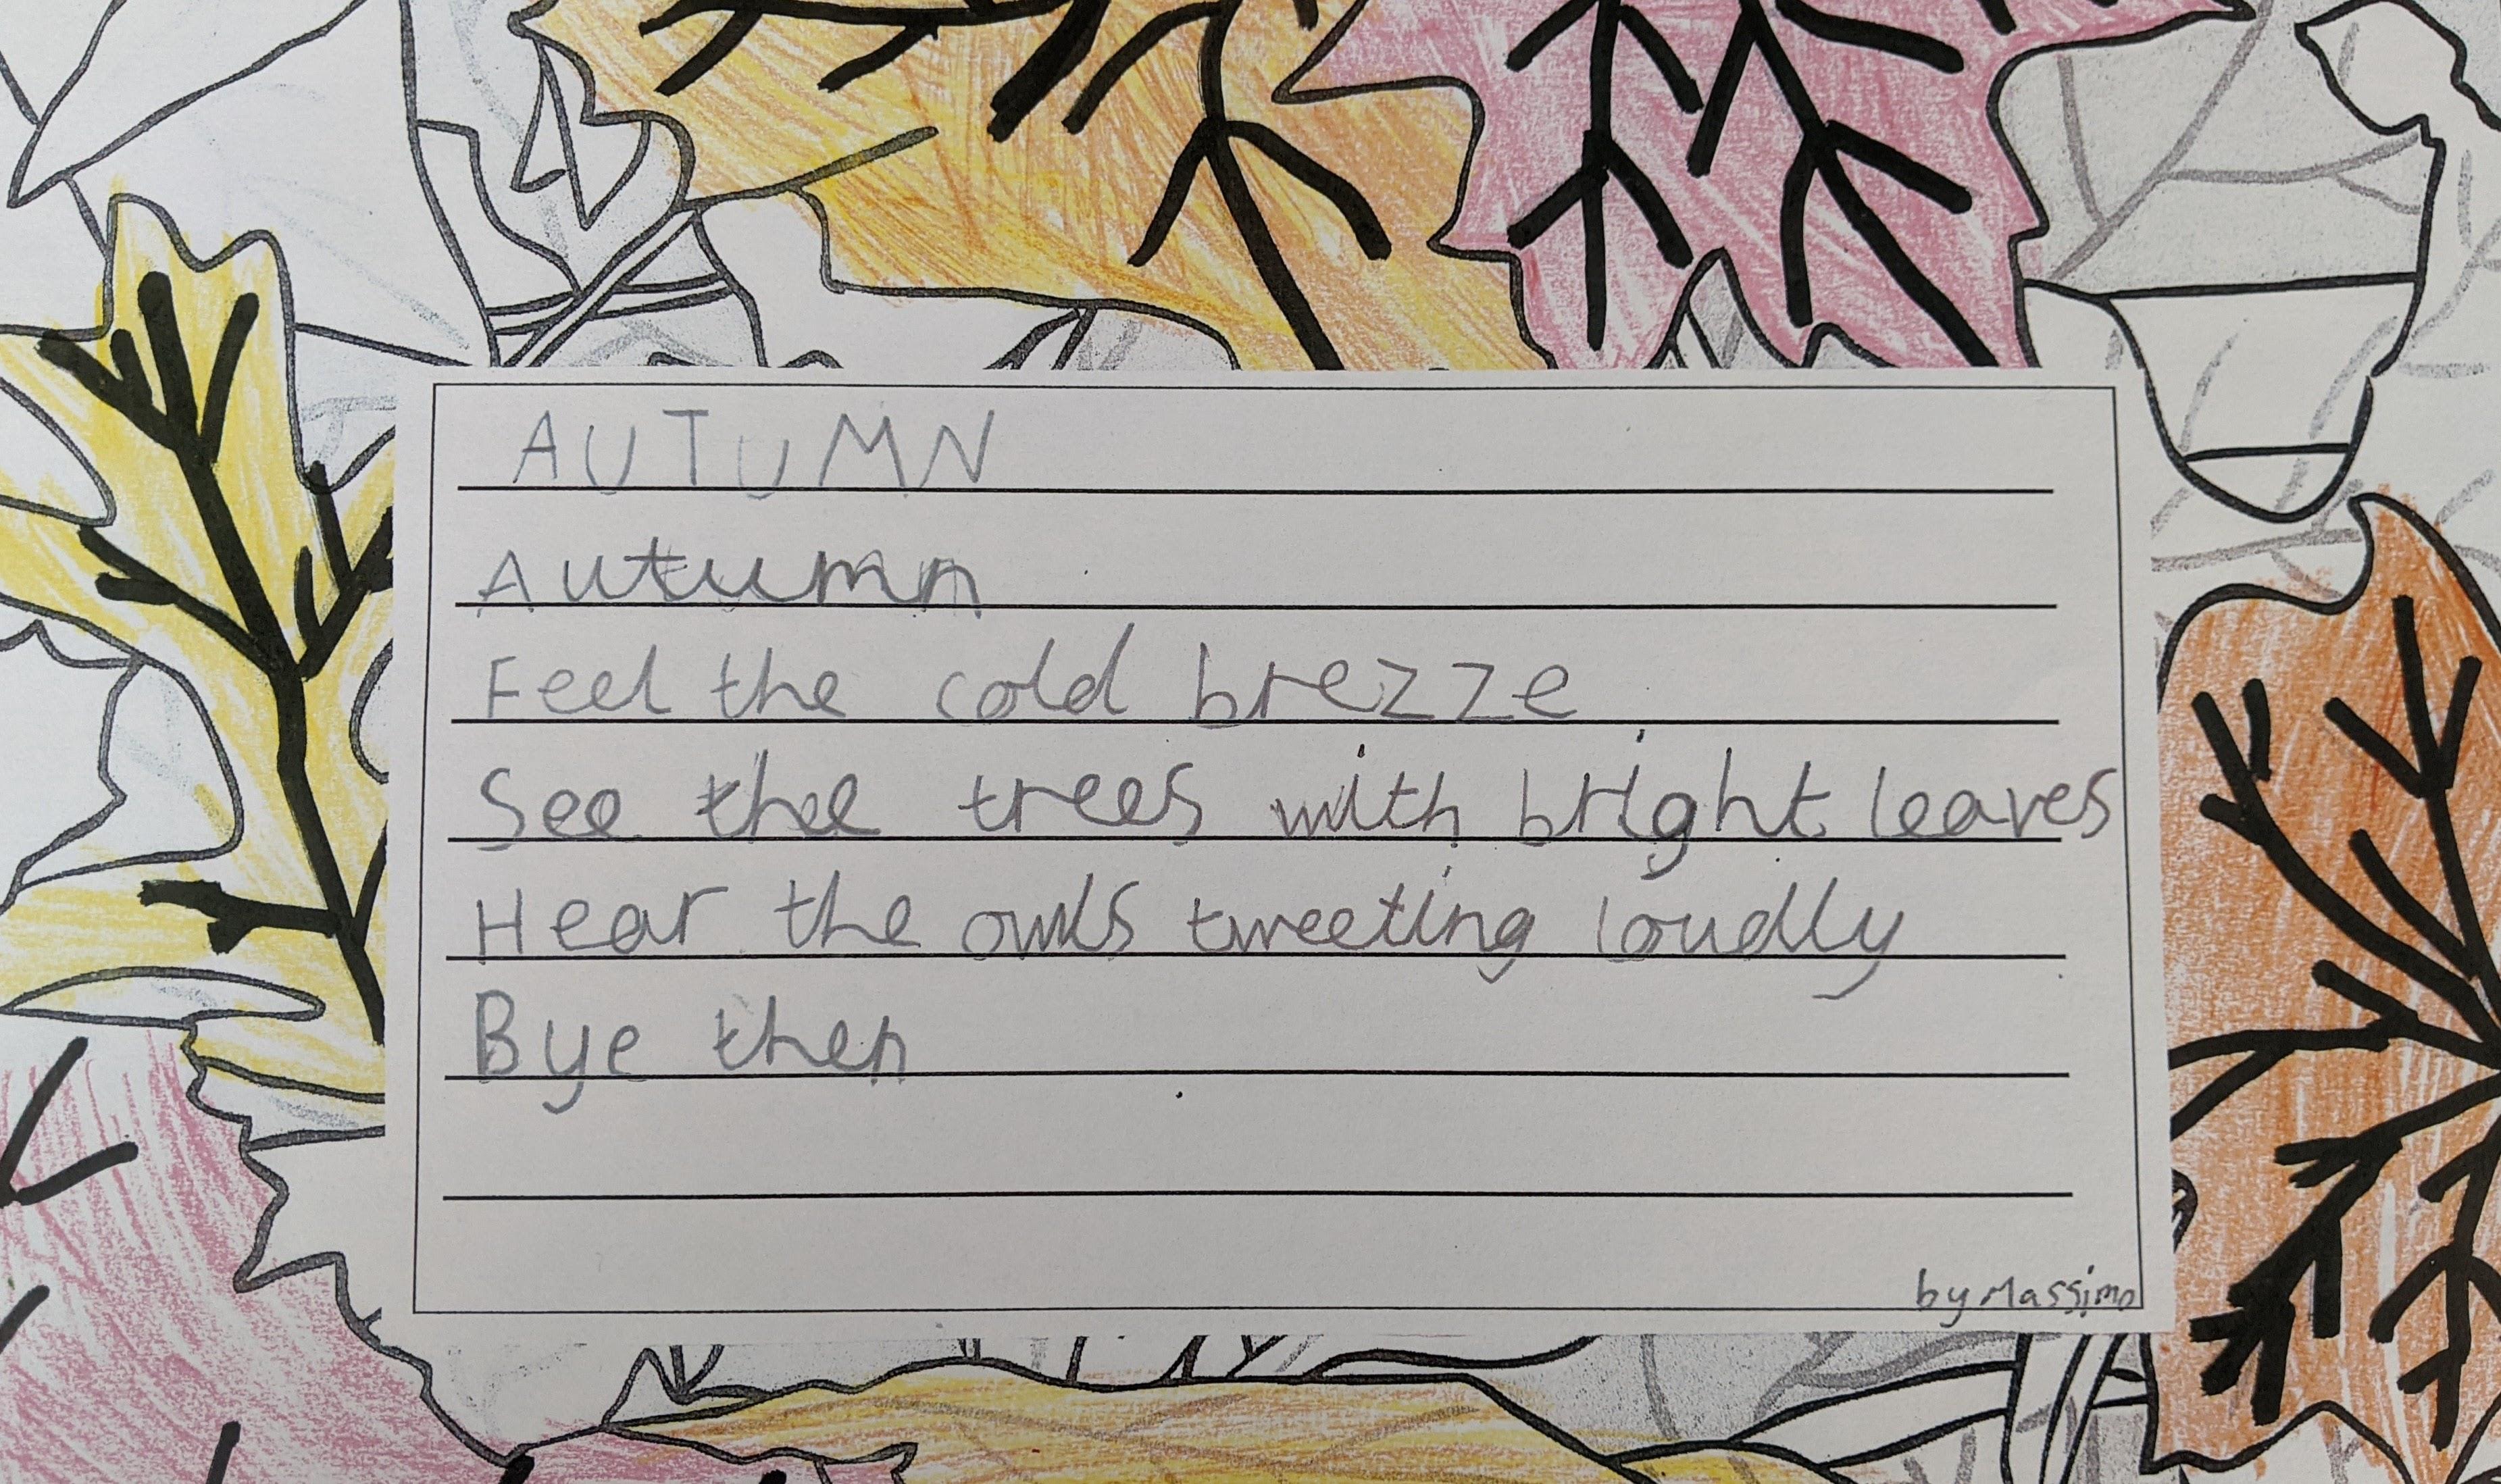 AUTUMN
Autumn
Feel the cold brezze
See the trees with bright leaves
Hear the owls tweeting loudly
Bye then
by Massimo